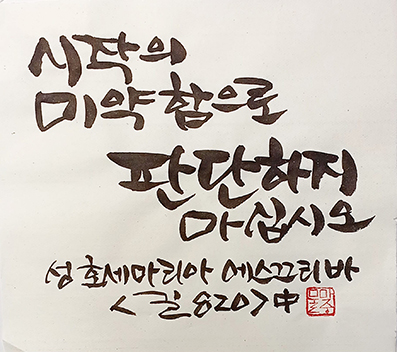 시작의
미약함으로
판단하지
마십시오
성호세마리아 에스끄리바
<길 820>中